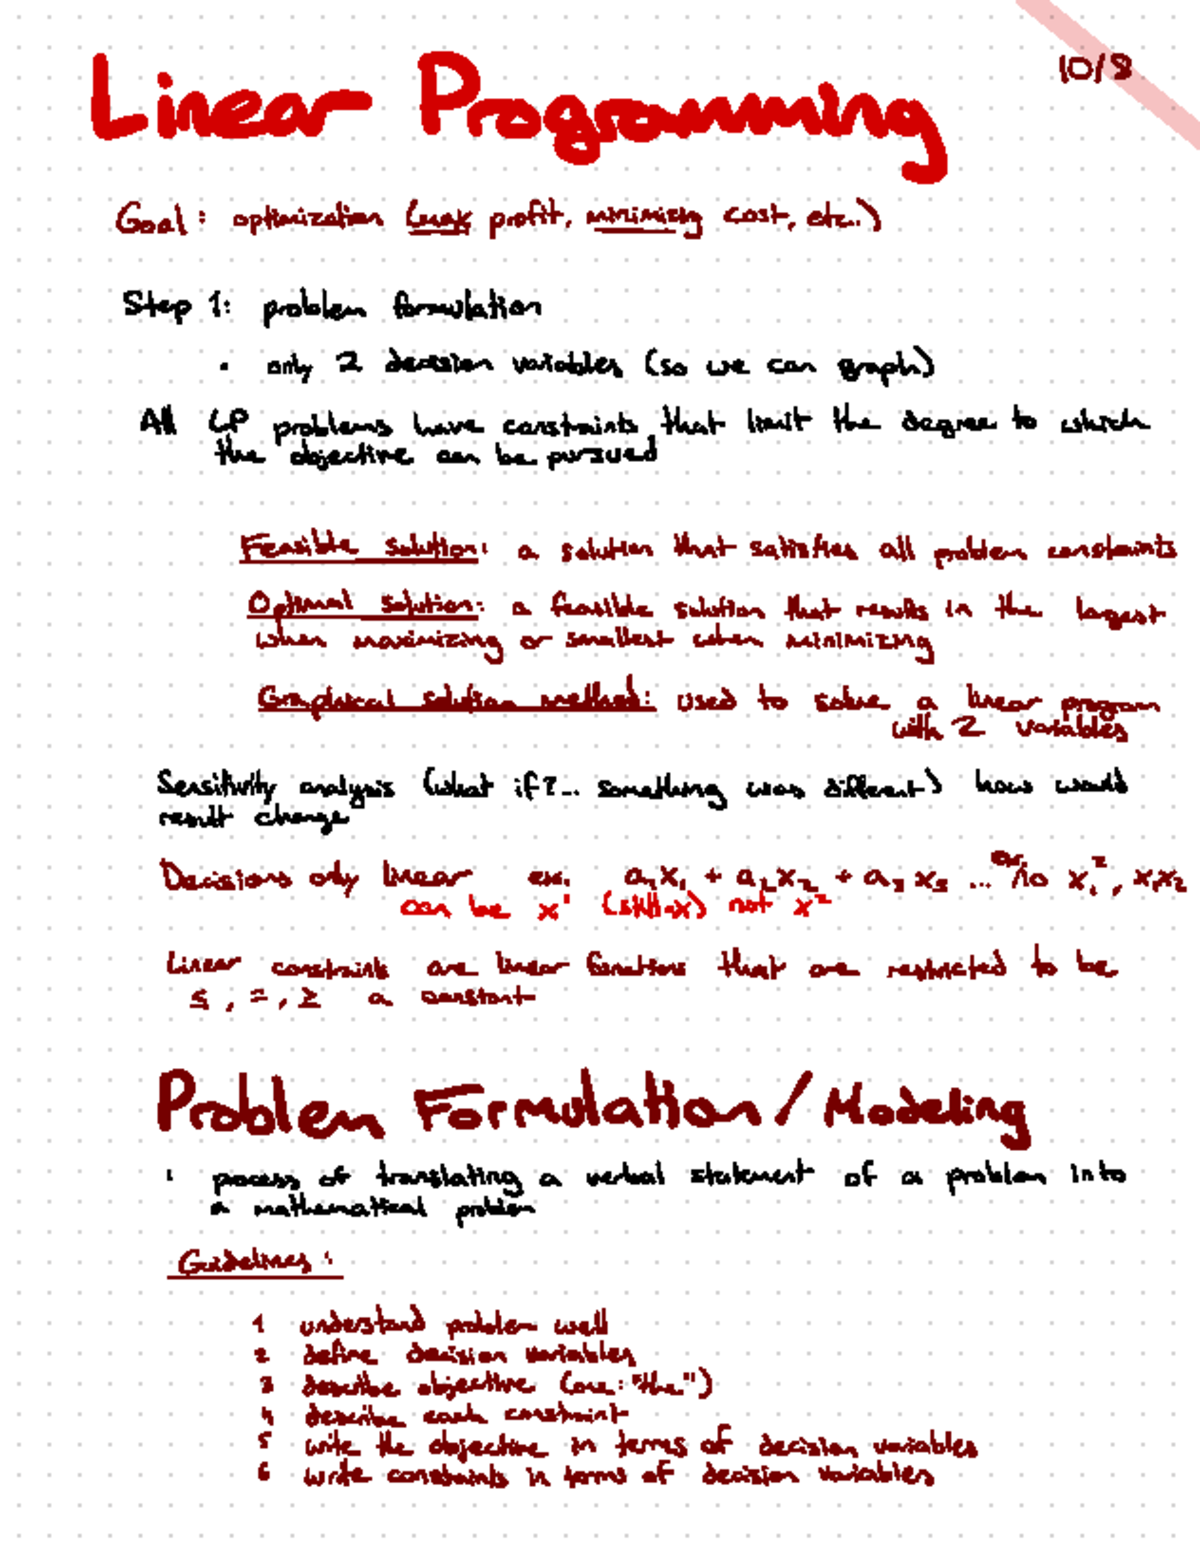 10/8
Linear Programming
Goal: optimization (max profit, minimizing cost, etc..)
Step 1: problem formulation
• only 2 decision variables (so we can graph)
All LP problems have constraints that limit the degree to which
the objective can be pursued
Feasible solution: a solution that satisfies all problem constraints
Optimal solution: a feasible solution that results in the largest
when maximizing or smallest when minimizing
Graphical solution method: used to solve a linear program
with 2 variables
Sensitivity analysis (what if?... something was different) how would
result change
Decisions only linear ex. a₁x₁ + a₂x₂ + a₃x₃ ... no x₁², x₁x₂
can be x¹ (still x) not x²
Linear constraints are linear functions that are restricted to be
≤, =, ≥ a constant
Problem Formulation / Modeling
: process of translating a verbal statement of a problem into
a mathematical problem
Guidelines:
1 understand problem well
2 define decision variables
3 describe objective (one: "the")
4 describe each constraint
5 write the objective in terms of decision variables
6 write constraints in terms of decision variables